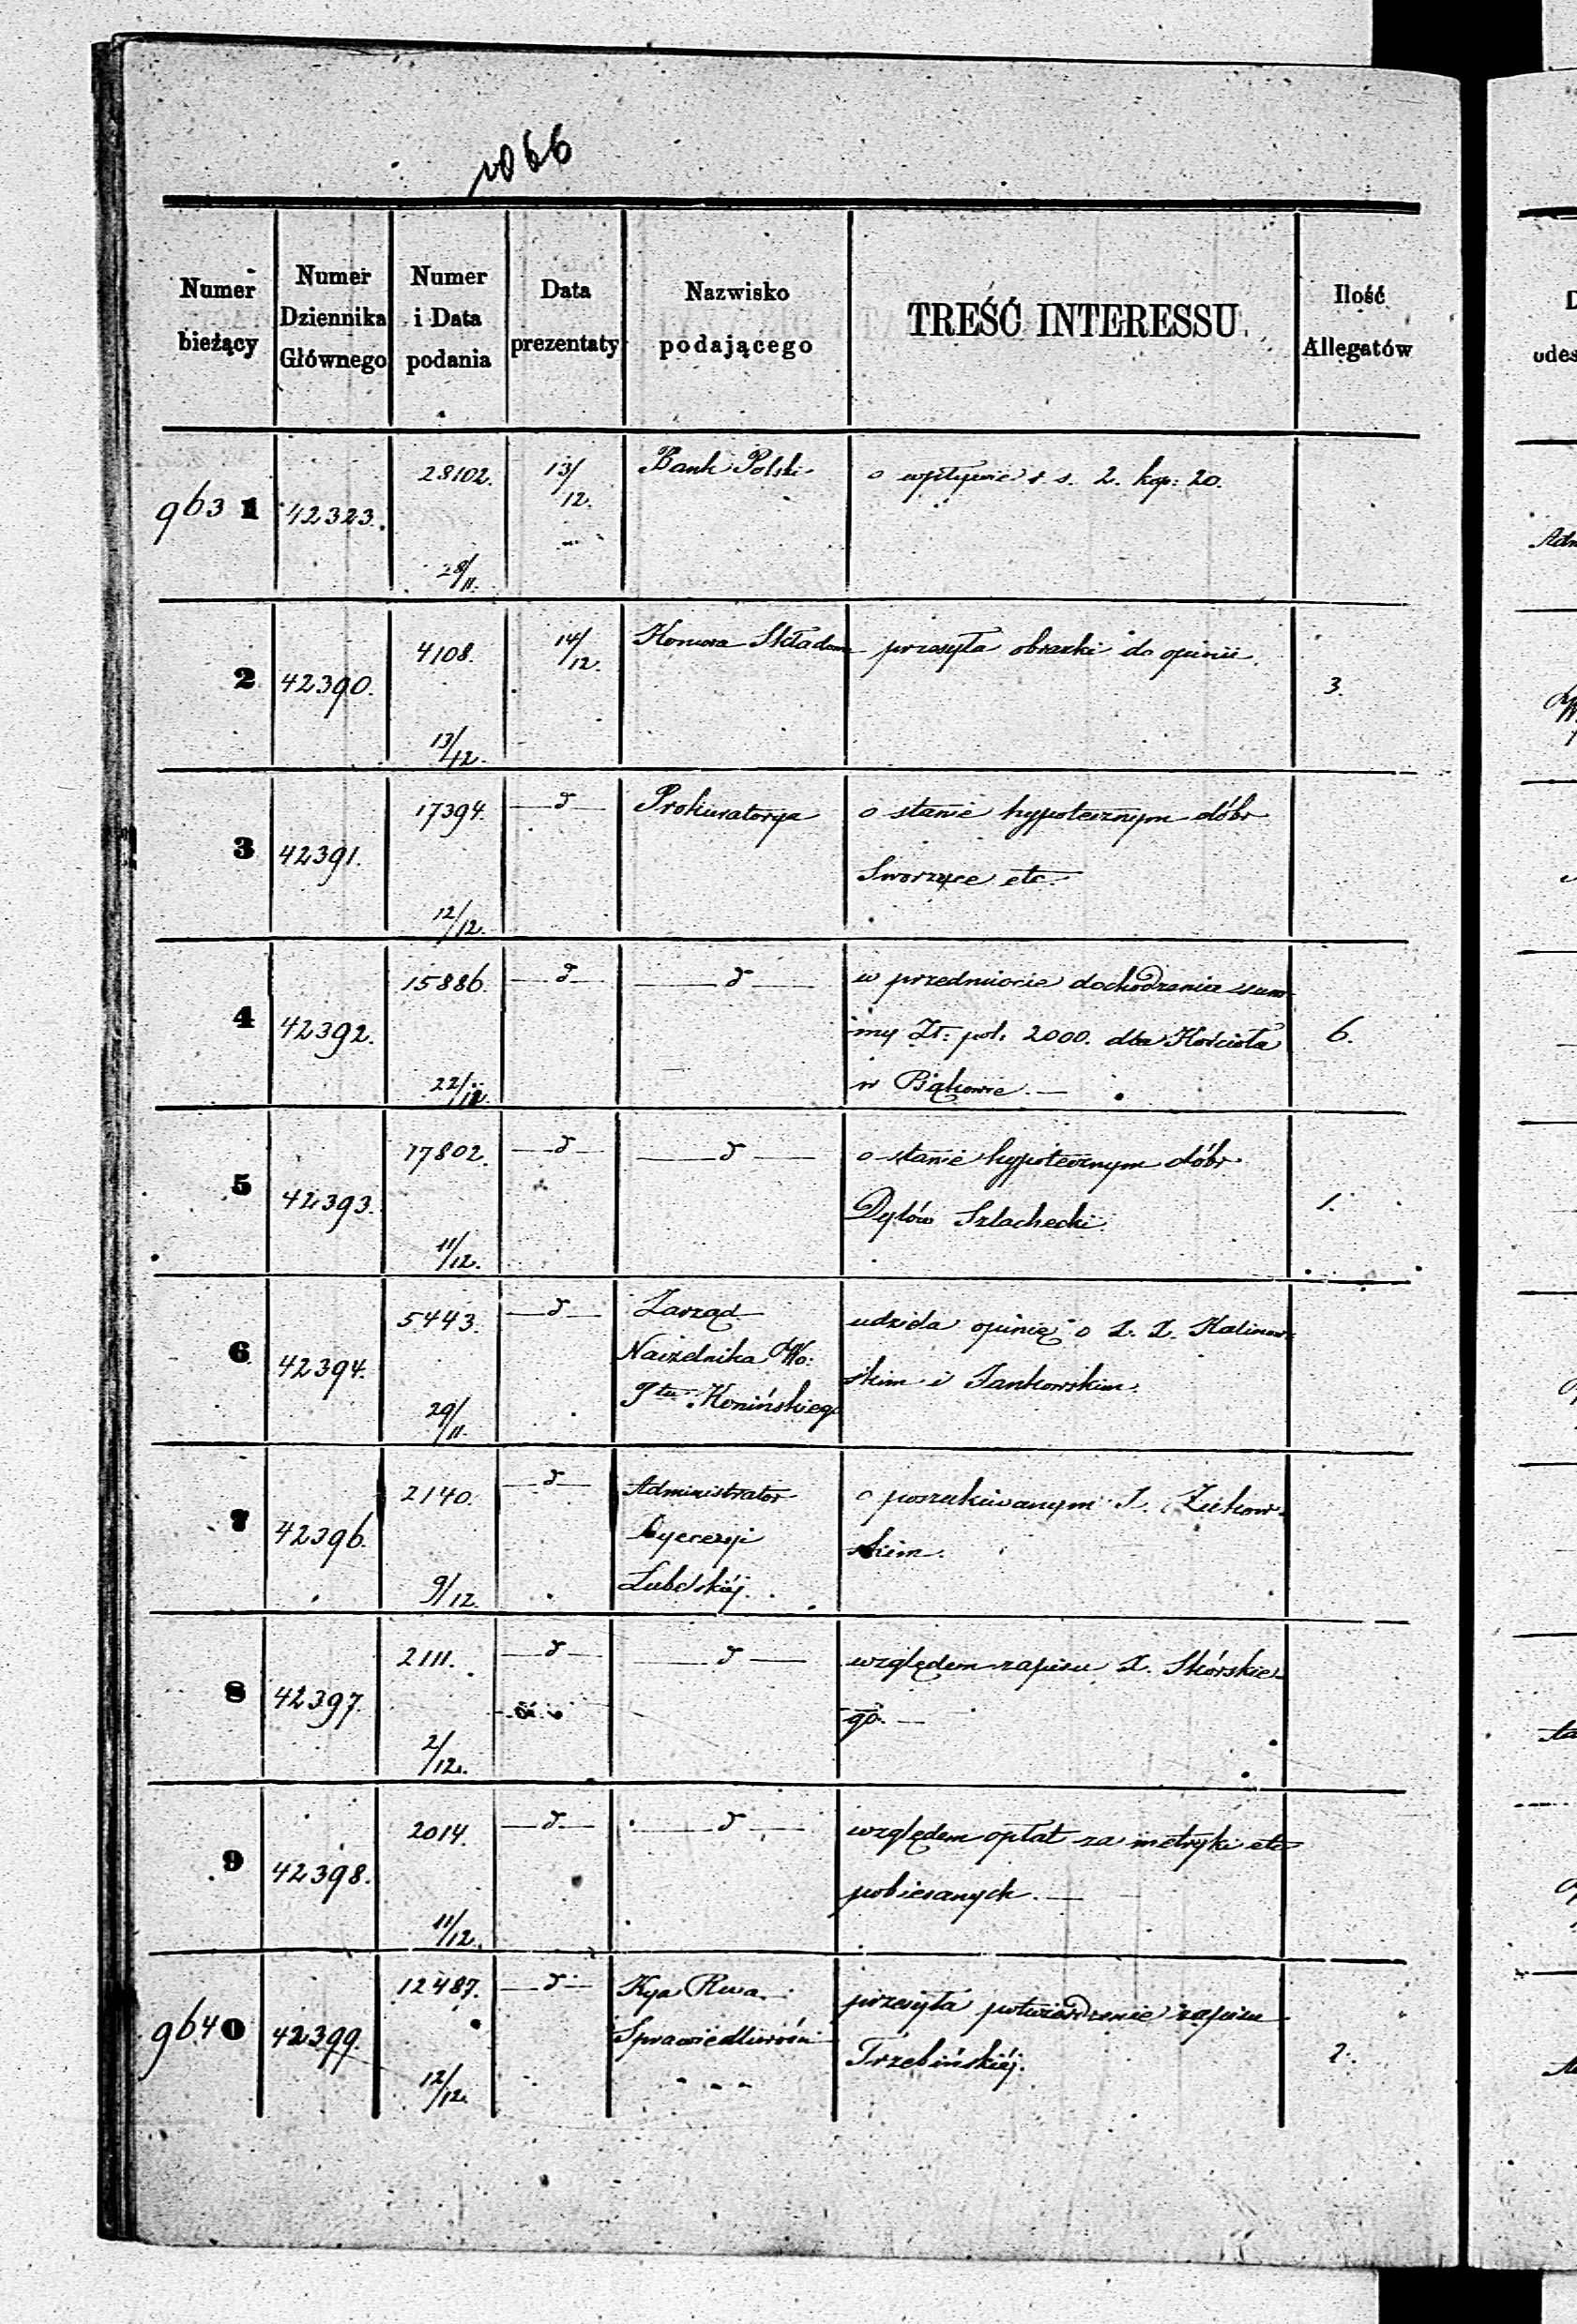 1066
Numer bieżący
Numer Dziennika Głównego
Numer i Data podania
Data prezentaty
Nazwisko podającego
TREŚĆ INTERESSU
Ilość Allegatów
963 1 42323. 28102. 28/11. 13/12. Bank Polski o wpływie r s. 2. kop: 20.
2 42390. 4108. 13/12. 14/12. Komora Składowa przesyła obrazki do opinii. 3.
3 42391. 17394. 12/12. —d— Prokuratorya o stanie hypotecznym dóbr
Sworzyce etc.
4 42392. 15886. 22/11. —d— —d— w przedmiocie dochodzenia sum-
my Zł: pol. 2000. dla Kościoła 6.
w Bąkowie. —
5 42393. 17802. 11/12. —d— —d— o stanie hypotecznym dóbr
Dylów Szlachecki. 1.
6 42394. 5443. 29/11. —d— Zarząd
Naczelnika Wo:
Ptu Konińskiego
udziela opinią o X. X. Kalinow-
skim i Jankowskim.
7 42396. 2140. 9/12. —d— Administrator
Dyecezyi
Lubelskiéj.
o poszukiwanym X. Żukow-
skim.
8 42397. 2111. 2/12. —d— —d— względem zapisu X. Skórskie-
go. —
9 42398. 2014. 11/12. —d— —d— względem opłat za metryki etc
pobieranych. —
964 0 42399. 12487. 12/12. —d— Kya Rwa
Sprawiedliwości
przesyła potwierdzenie zapisu
Trzebińskiéj. 2.